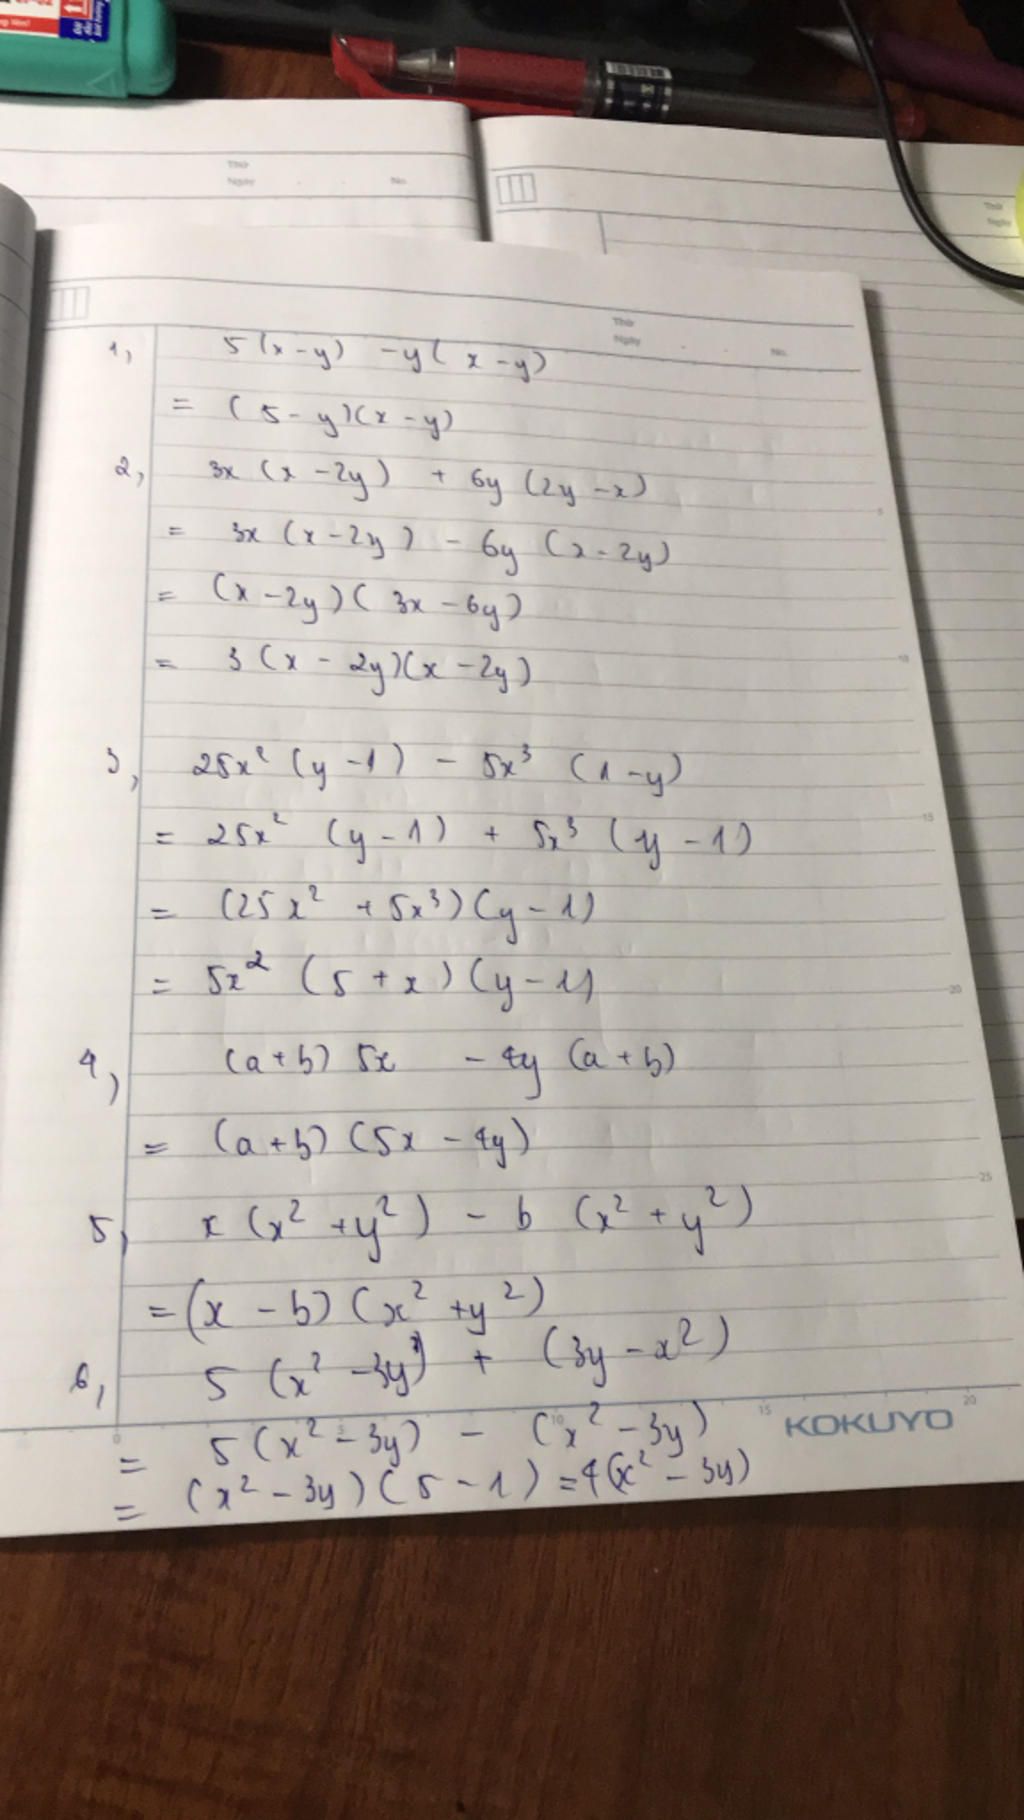 Thứ
Ngày . . No.
Thứ
Ngày
Thứ
Ngày . . No.
1, 5(x-y) -y(x-y)
= (5-y)(x-y)
2, 3x (x-2y) + 6y (2y-x)
= 3x (x-2y) - 6y (x-2y)
= (x-2y)(3x-6y)
= 3(x-2y)(x-2y)
3, 25x² (y-1) - 5x³ (1-y)
= 25x² (y-1) + 5x³ (y-1)
= (25x² + 5x³)(y-1)
= 5x² (5+x)(y-1)
4, (a+b) 5x - 4y (a+b)
= (a+b)(5x-4y)
5, x(x²+y²) - b (x²+y²)
= (x-b)(x²+y²)
6, 5(x²-3y) + (3y-x²)
= 5(x²-3y) - (x²-3y)
= (x²-3y)(5-1) = 4(x²-3y)
5
10
15
20
25
0 5 10 15 20
KOKUYO